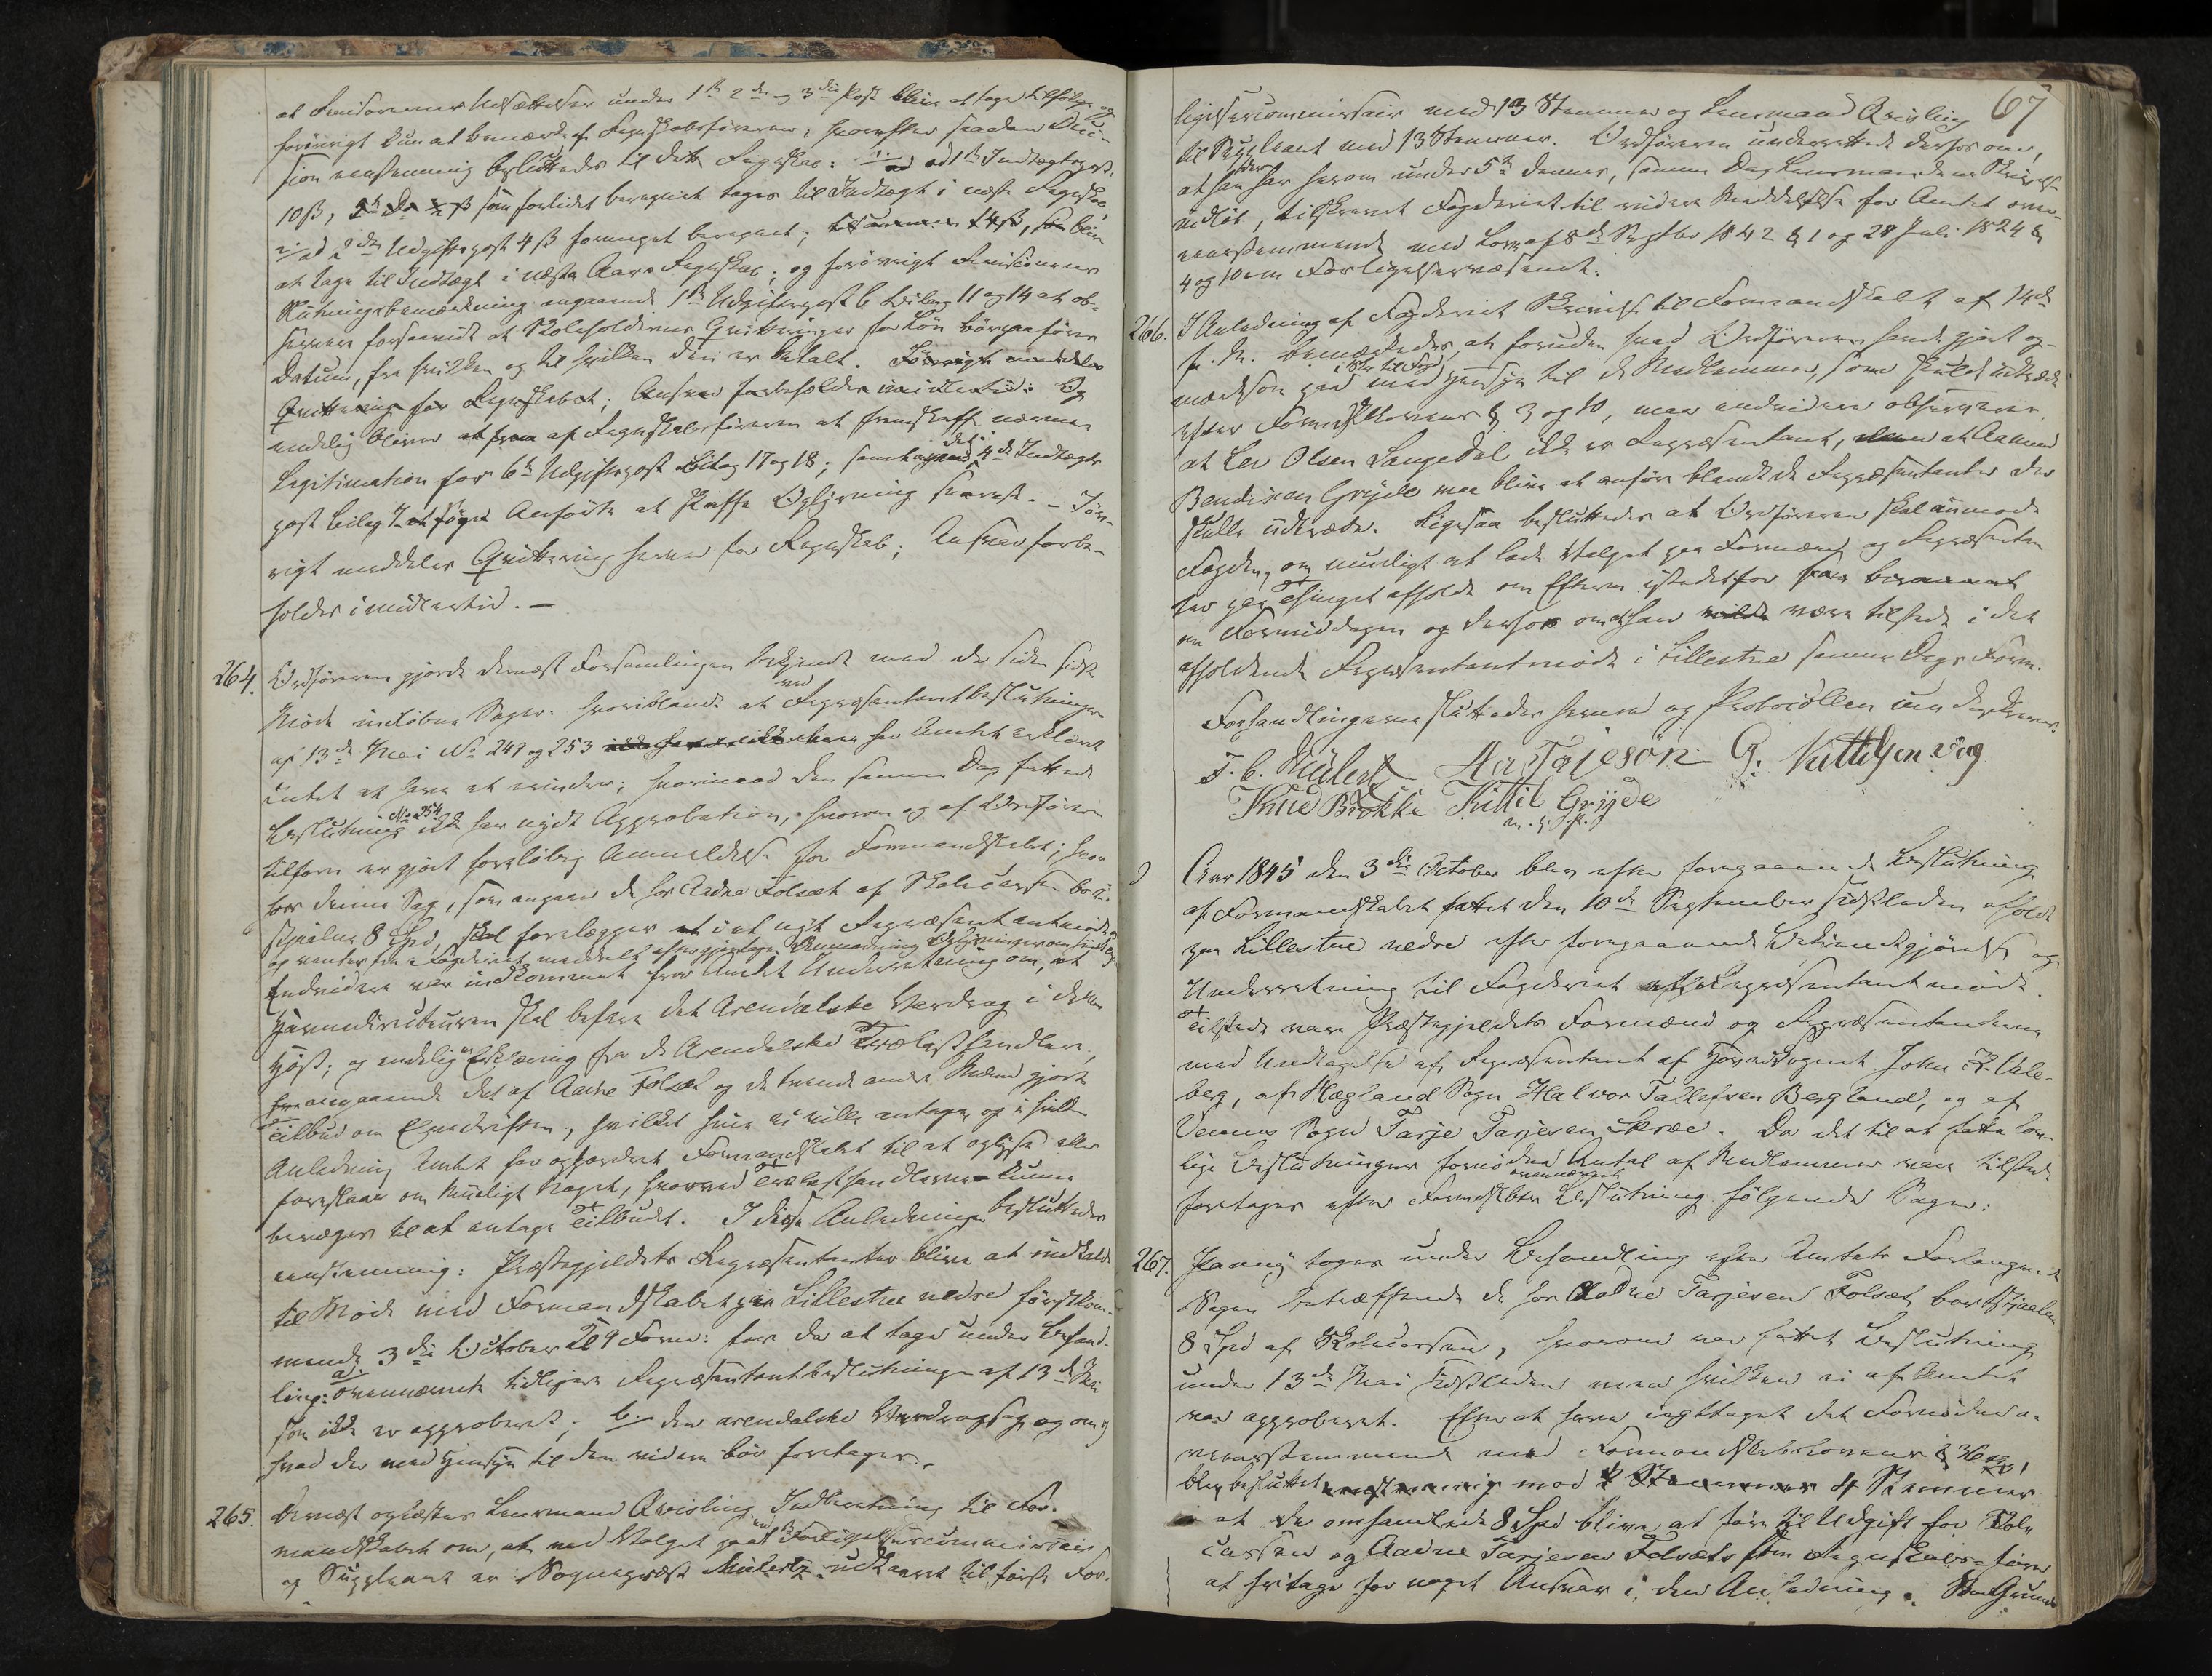 at Revisorernes Udsættelser under 1ste 2den og 3die Post bliver at tage tilfølge og
forøvrigt kun at bemærke af Regnskabsføreren; hvorefter saadan Deci-
sion eenstemmig besluttedes til dette Regnskab: 1. ad 1ste Indtægtspost
10 ß, som forlidet beregnet tages til Indtægt i næste Regnskab,
2. ad 2den Udgiftspost 4 ß formeget beregnet; 4 ß, som bliver
at tage til Indtægt i næste Aars Regnskab; og forøvrigt Revisorernes
Slutningsbemærkning angaaende 1ste Udgiftspost Bilag 11 og 14 at ob-
servere forsaavidt at Skoleholdernes Qvitteringer for Løn bør paaføres
Datum, fra hvilken og til hvilken den er betalt. Forøvrigt meddeles
Qvittering for Regnskabet; Ansvar forbeholdes imidlertid. Og
endelig bliver af Regnskabsføreren at fremskaffe nærmere
Legitimation for 6te Udgiftspost Bilag 17 og 18; samt angaaende 4de Indtægts
post Bilag 7 at søge Anførte at skaffe Oplysning snarest. – Føv-
rigt meddeles Qvittering herved for Regnskab; Ansvar forbe-
holdes imidlertid. –
264. Ordføreren gjorde dernæst Forsamlingen bekjendt med de siden sidste
Møde indløbne Sager. hvoriblandt at ved Repræsentantbeslutninger
af 13de Mai No 249 og 253 har Amtet erklæret
Intet at have at erindre; hvorimod den samme Dag fattede
Beslutning No 254 ikke har nydt Approbation, hvorom og af Ordføreren
tilforn er gjort foreløbig Anmeldelse for Formandskabet; hvor
for denne Sag, som angaaer de for Aadne Tolsæt af Skolecassen bort-
stjaalne 8 Spd, skal forelægges i et nyt Repræsentantmøde,
og venter fra Fogderiet meddelt efter gjentagen Anmodning Oplysninger
Endvidere var indkommet fra Amtet Underretning om, at
Havnedirecteuren skal befare det Arendalske Vasdrag i dette
Høst; og endelig en Erklæring fra de Arendalske Trælasthandlere,
angaaende det af Aadne Tolsæt og de tvende andre Mænd gjorte
Tilbud om Elvedriften, hvilket hine ei ville antage, og i hvilken
Anledning Amtet har opfordret Formandskabet til at oplyse eller
foreslaae om muligt Noget, hvorved Trælasthandlerne kunne
bevæges til at antage Tilbudet. I disse Anledninger besluttedes
eenstemmig: Præstegjeldets Repræsentanter bliver at indkalde
til Møde med Formandskabet paa Lillestue nedre førstkom-
mende 3die October Kl 9 Form: for da at tage under Behand-
ling: a. ovennævnte tidligere Repræsentantbeslutninger af 13de Mai
som ikke er approberet; b. den arendalske Vasdragssag og om og
hvad der med Hensyn til den videre bør foretages.
265. Dernæst oplæstes Lensmand Qvisling Indberetning til For-
mandskabet om, at ved Valget paa en Forligelsescommissair
og Suppleant er Sognepræst Mülertz udkaaret til første For-
67
ligelsescommissair med 13 Stemmer og Lensmand Qvisling
til Suppleant med 13 Stemmer. Ordføreren underrettede derhos om,
at han har herom under 5te dennes, samme Dag Lensmandens Skrivelse
indløb, tilskrevet Fogderiet til videre Meddelelse for Amtet over-
eensstemmende med Lov af 8de Septbr 1842 § 1 og 28 Juli 1824 §
4 og 10 om Forligelsesvæsenet.
266. I Anledning af Fogderiets Skrivelse til Formandskabet af 14de
f. M. bemærkedes, at foruden hvad Ordføreren havde gjort op-
mærksom paa med Hensyn til de Medlemmer, som skulde udtræde
efter Formskblovens § 3 og 10, maa endvidere observeres
at Lev Olsen Langedal ikke er Repræsentant, men at Aanund
Bendixen Gryde maa blive at anføre blandt de Repræsentanter der
skulle udtræde. Ligesaa besluttedes at Ordføreren skal anmode
Fogden, om muligt at lade Valget paa Formænd og Repræsentan
ter paa Thinget afholde om Efterm: istedetfor som berammet
om Formiddagen og derhos om at han være tilstede i det
afholdende Repræsentantmøde i Lillestue samme Dags Form.
Forhandlingerne sluttedes herved og Protocollen underskreves.
F. C. Mülertz Aa Tajesøn G. Kittilsen Vig
Knud Brokke Kittil Gryde
m. f. P.
Aar 1845 den 3die October blev efter foregaaende Beslutning
af Formandskabet fattet den 10de September sidstleden afholdt
paa Lillestue nedre efter foregaaende Bekjendtgjørelse og
Underretning til Fogderiet Repræsentantmøde.
Tilstede vare Præstegjeldets Formænd og Repræsentanterne
med Undtagelse af Repræsentant af Hovedsognet John K. Ule-
berg, af Hægland Sogn Halvor Tallefsen Bergland, og af
Vennes Sogn Tarje Tarjesen Skræe. Da det til at fatte lov-
lige Beslutninger fornødne Antal af Medlemmer vare tilstede
foretages efter Formskbts ovennævnte Beslutning følgende Sager:
267. Paany toges under Behandling efter Amtets Forlangende
Sagen betræffende de for Aadne Tarjesen Tolsæt bortstjaalne
8 Spd af Skolecassen, hvorom var fattet Beslutning
under 13de Mai sidstleden men hvilken ei af Amtet
var approberet. Efter at have iagttaget det Fornødne o-
vereensstemmende med Formandskabslovens § 36
blev besluttet mod 4 Stemmer
at de omhandlede 8 Spd bliver at føre til Udgift for Skole
cassen og Aadne Tarjesen Tolsæt som Regnskabsfører
at fritage for noget Ansvar i den Anledning. Som Grund